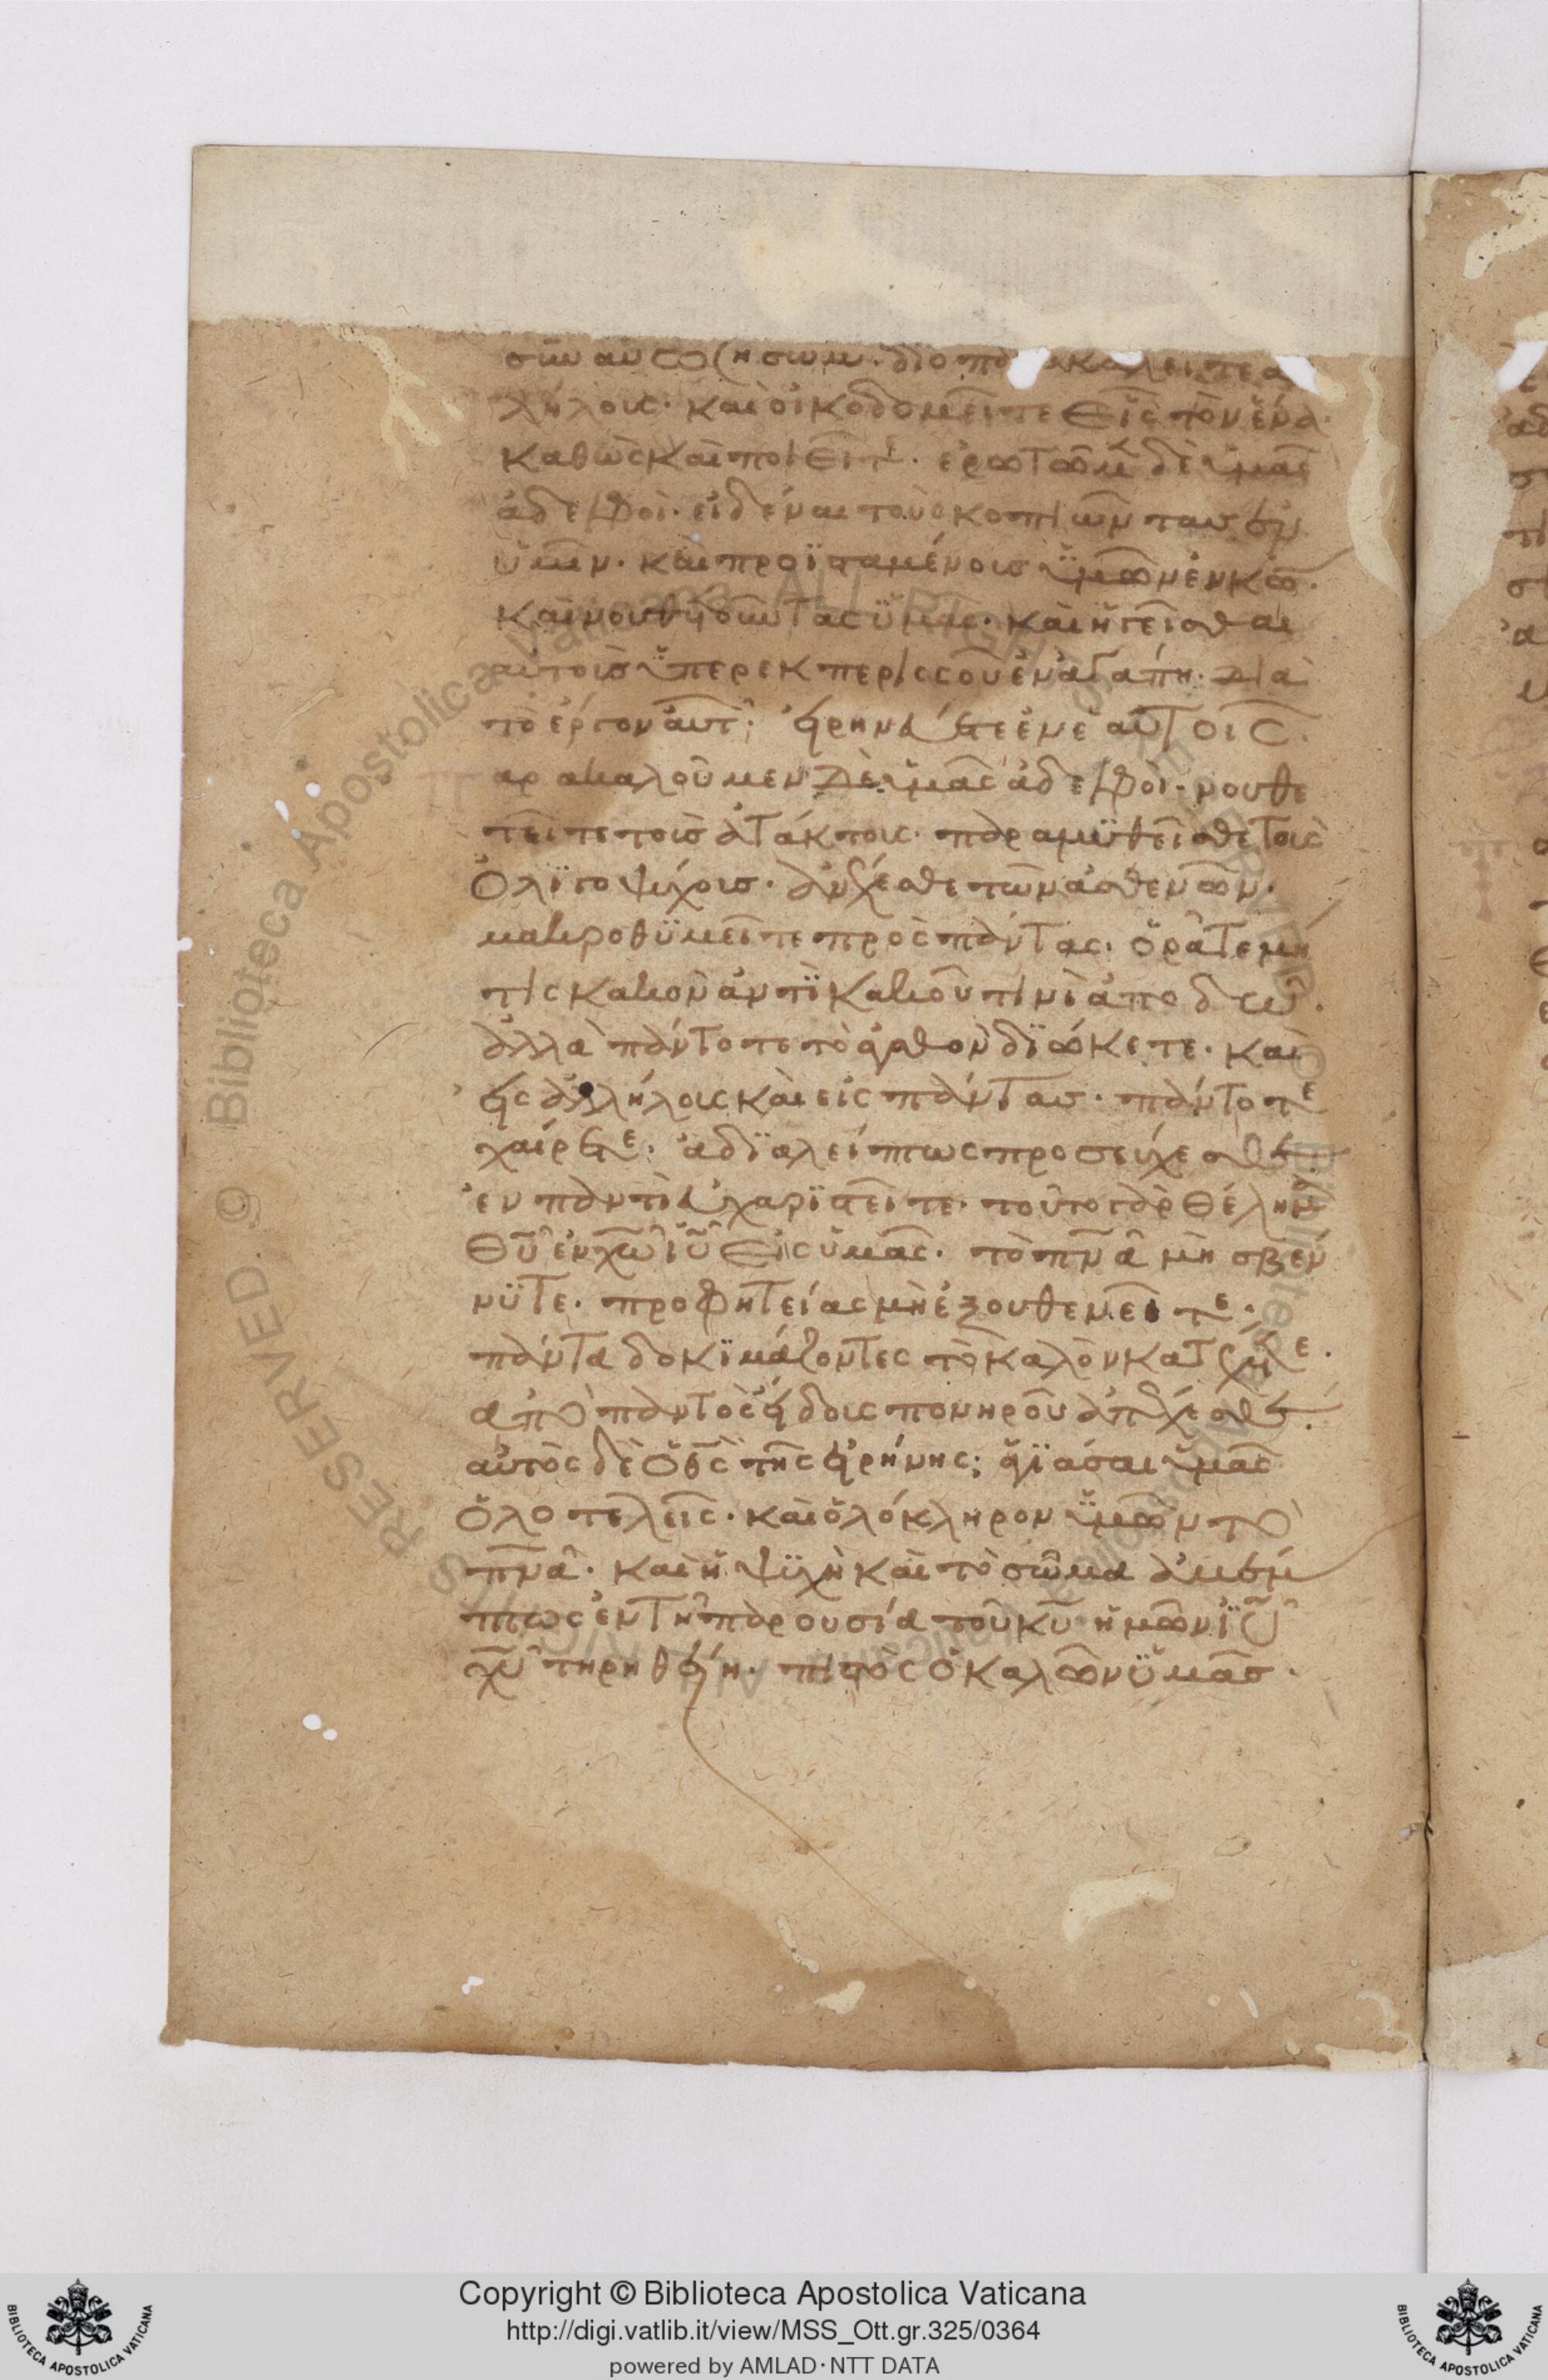 σὺν αὐτῶ ζήσωμεν· διὸ παρακαλεῖτε ἀλ
λήλοις· καὶ οἰκοδομεῖτε εἷς τὸν ἕνα·
καθὼς καὶ ποιεῖτε· ἐρωτῶμεν δὲ ὑμᾶς
ἀδελφοὶ· εἰδέναι τοὺς κοπιῶντας ἐν
ὑμῖν· καὶ προϊσταμένοις ὑμῶν ἐν κω·
καὶ νουθετοῦντας ὑμᾶς· καὶ ἡγεῖσθαι
αὐτοὶς ὑπερεκπερισσοῦ ἐν ἀγάπη· διὰ
τὸ ἔργον αυτ· εἰρηνεύετε ἐν ἑαυτοῖς·
αρακαλοῦμεν δὲ ὑμᾶς ἀδελφοὶ· νουθε
τεῖτε τοὶς ἀτάκτοις· παραμϋθεῖσθε τοὶς
ὀλϊγοψύχοις· ἀντέχεσθε τῶν ἀσθενῶν·
μακροθϋμεῖτε πρὸς πάντας· ὁρᾶτε μή
τις κακὸν ἀντῒ κακοῦ τινὶ ἀποδῶ·
ἀλλὰ πάντοτε τὸ ἀγαθὸν δϊώκετε· καὶ
εἰς ἀλλήλοις καὶ εἰς πάντας· πάντοτε
χαίρετε· ἀδϊαλείπτως προσεύχεσθε·
ἐν παντὶ εὐχαρϊστεῖτε· τοῦτο γὰρ θέλημα
θῦ ἐν χῶ ἰῦ εἰς ὑμᾶς· τὸ πνᾶ μὴ σβέν
νϋτε· προφητείας μὴ ἐξουθενεῖτε·
πάντα δοκϊμάζοντες τὸ καλὸν κατέχετε·
ἀπὸ παντὸς εἴδοις πονηροῦ ἀπέχεσθε·
αὐτὸς δὲ ὁ θς τῆς εἰρήνης· ἁγϊάσαι ὑμᾶς
ὁλοτελεῖς· καὶ ὁλόκληρον ὑμῶν τὸ
πνᾶ· καὶ ἡ ψϋχὴ καὶ τὸ σῶμα ἀμέμ
πτως ἐν τῆ παρουσία τοῦ κῦ ἡμῶν ἰῦ
χῦ τηρηθείη· πιστὸς ὁ καλῶν ὑμᾶς·
Copyright © Biblioteca Apostolica Vaticana
http://digi.vatlib.it/view/MSS_Ott.gr.325/0364
powered by AMLAD·NTT DATA